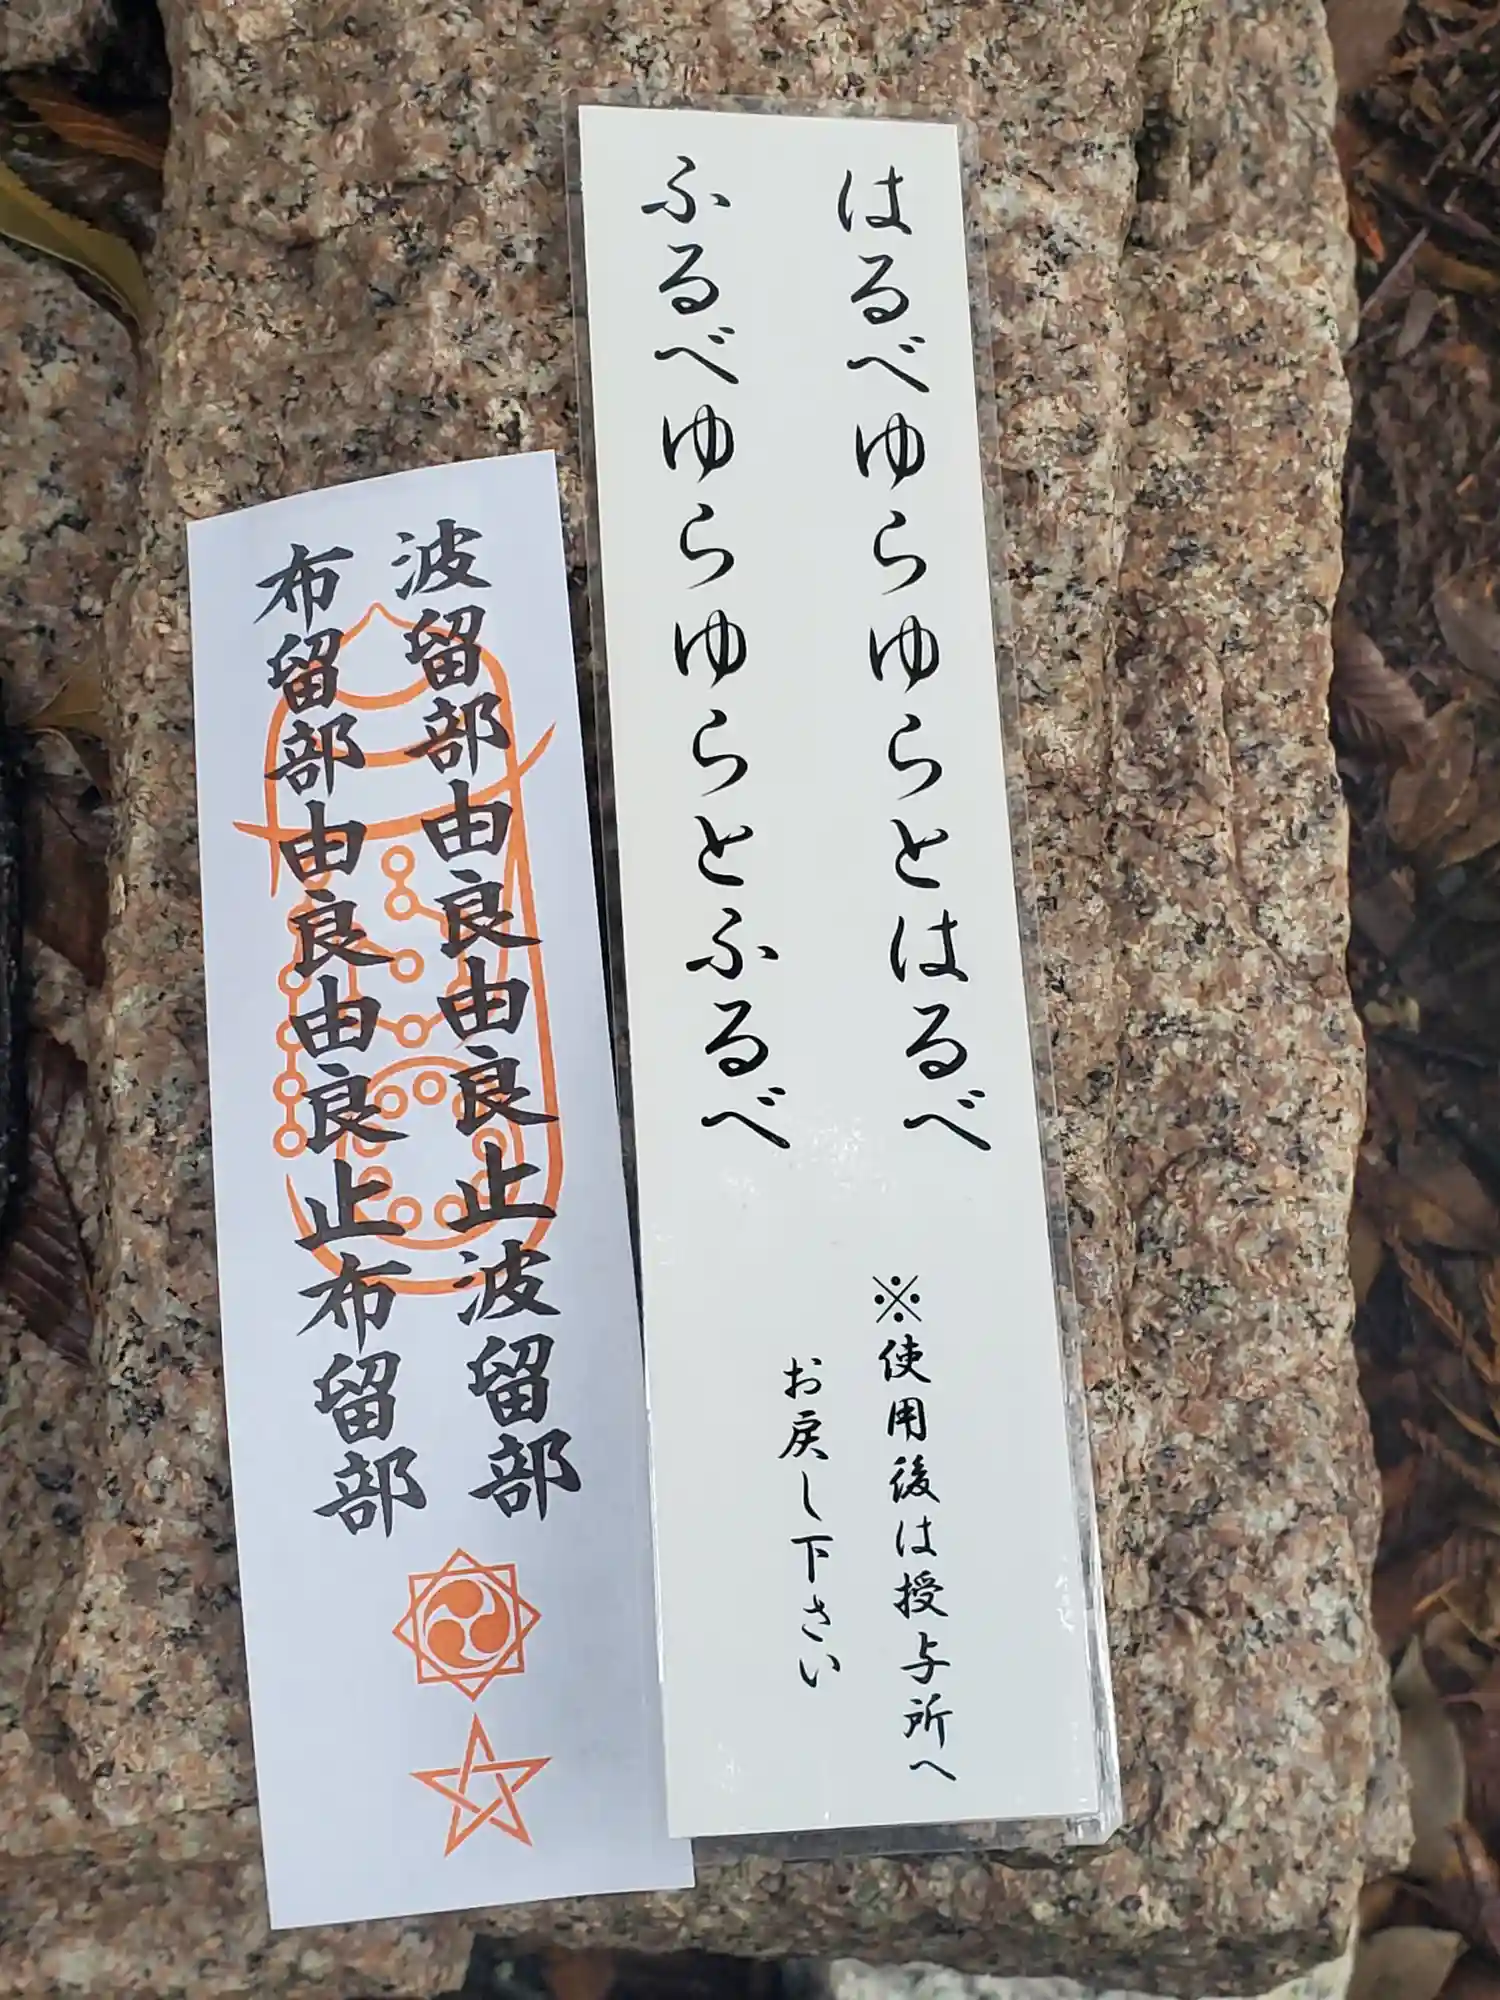 はるべゆらゆらとはるべ
ふるべゆらゆらとふるべ
※使用後は授与所へ
お戻し下さい
波留部由良由良止波留部
布留部由良由良止布留部